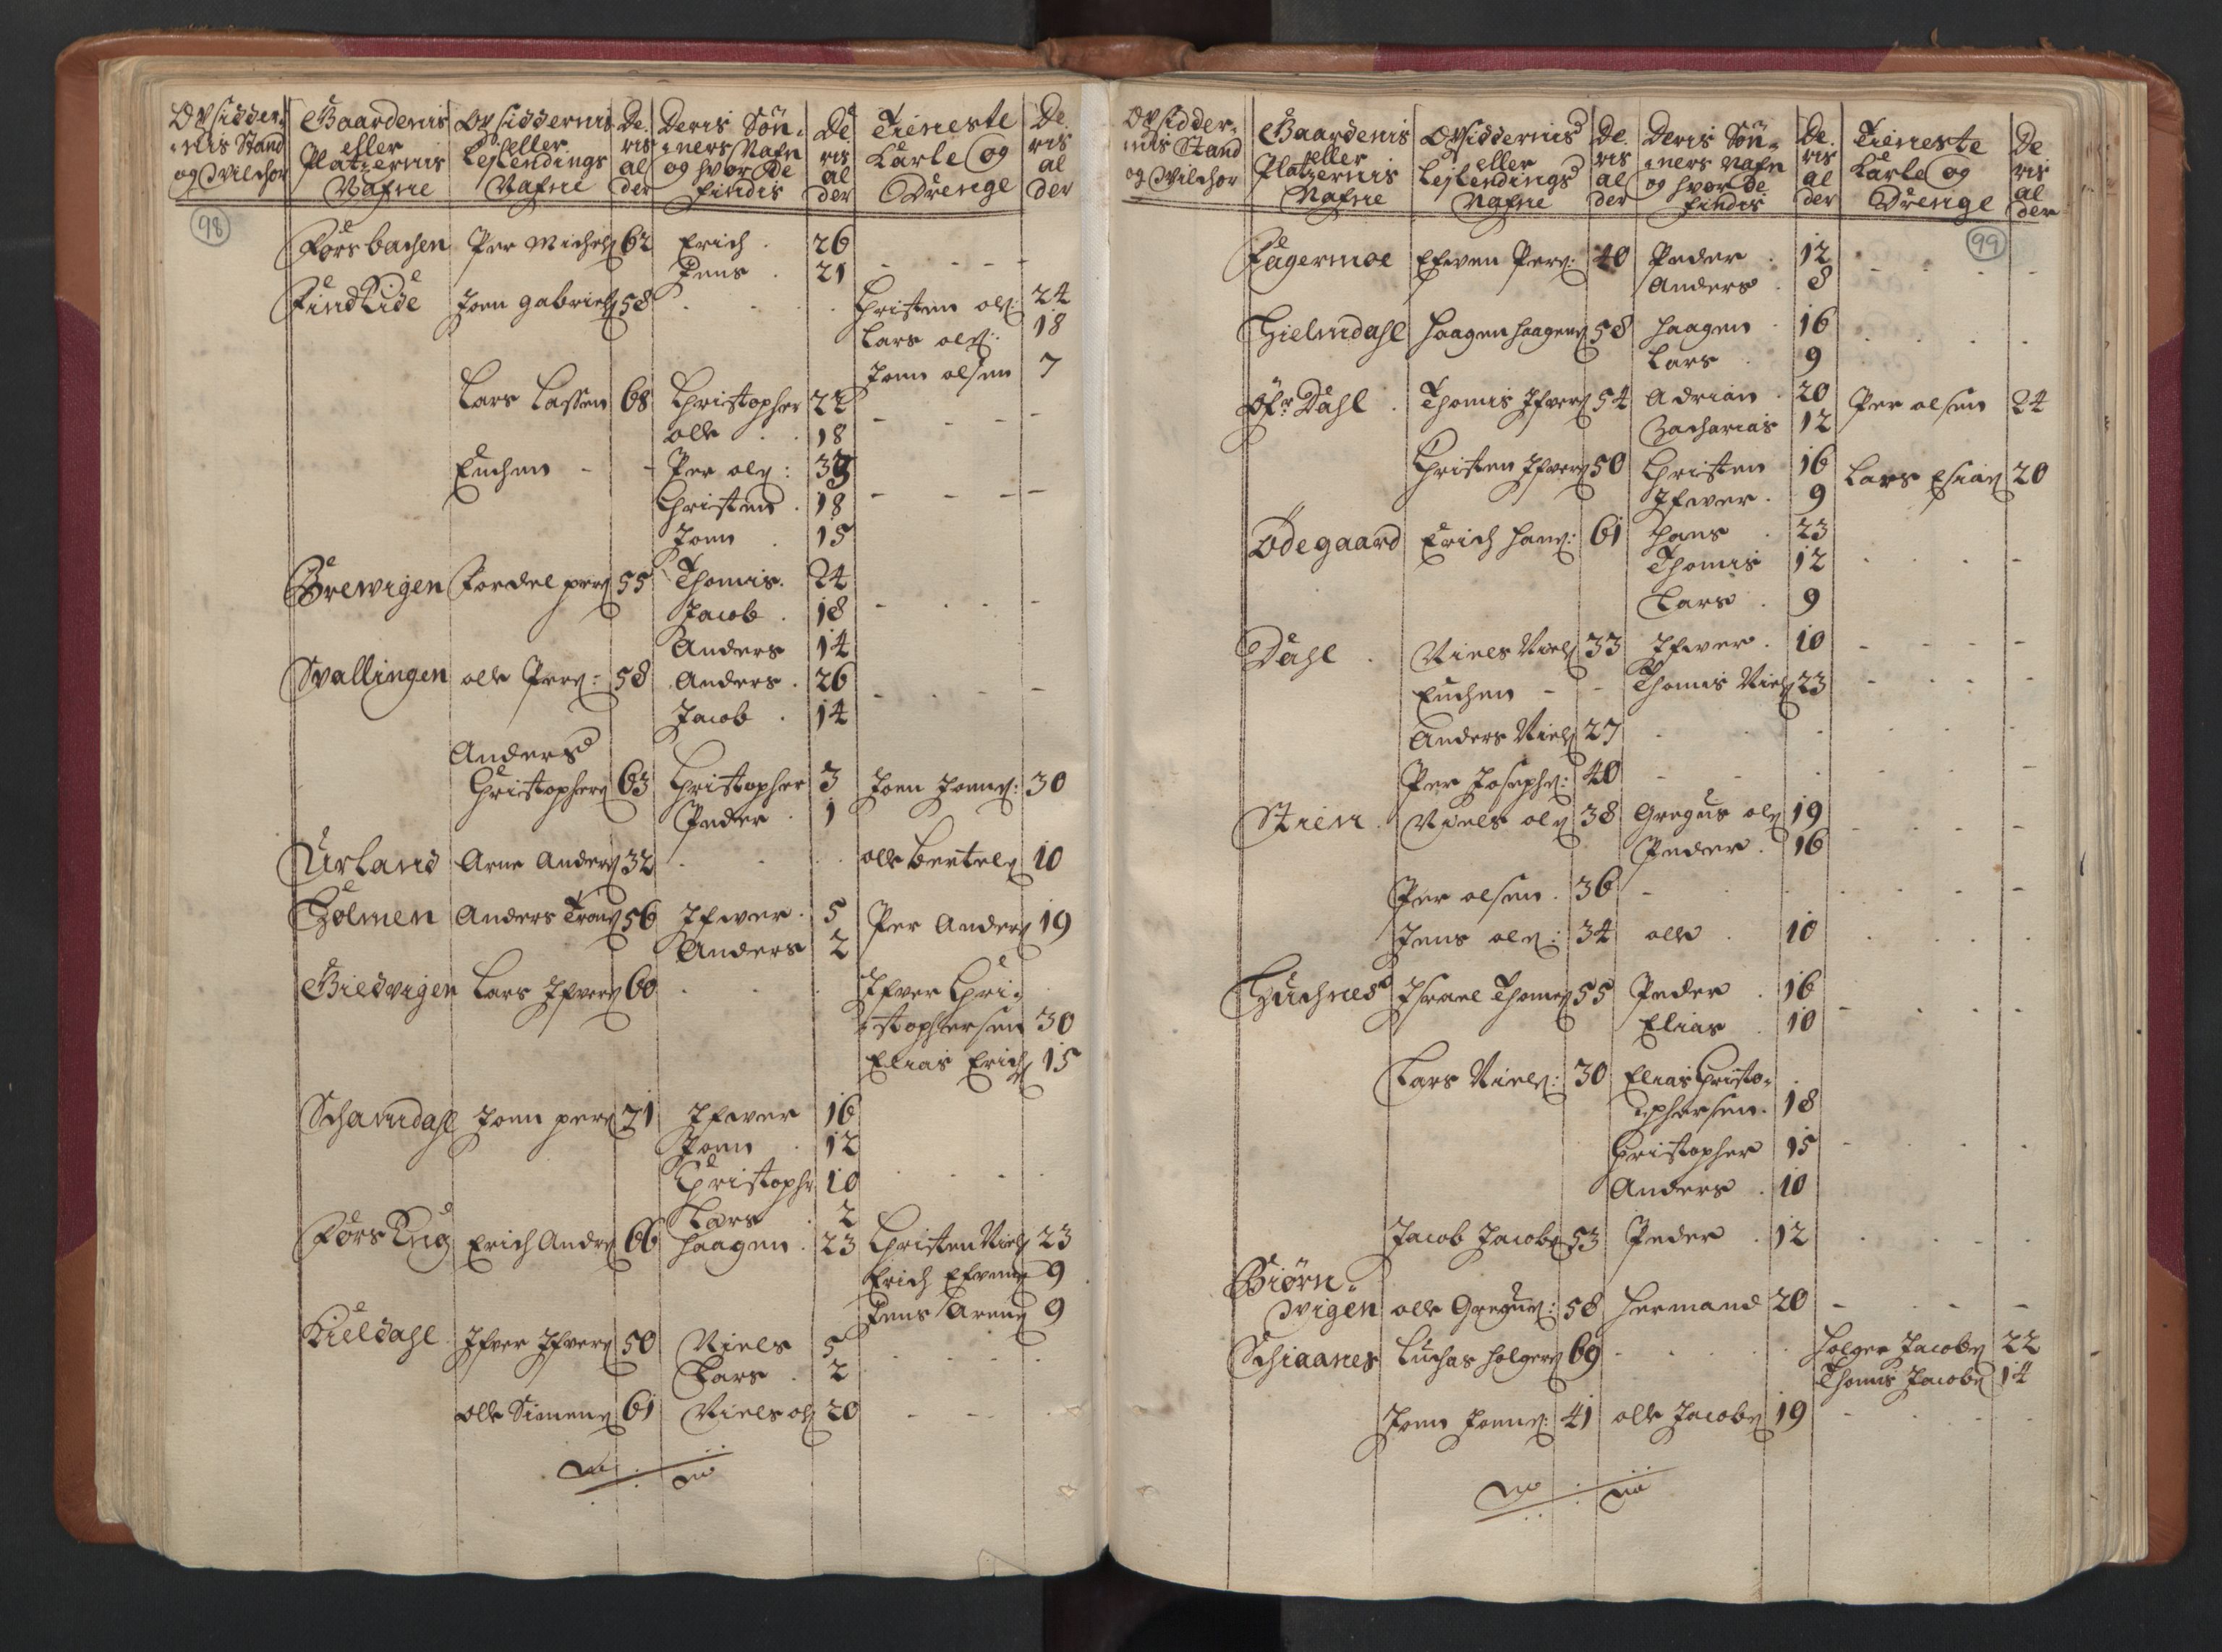 Opsidder-
nis Stand
og Vilchor
Gaardenis
eller
Platzernis
Nafne
Opsiddernis
eller
Leylendings
Nafne
De
ris
al
der
Deris Søn-
ners Nafn
og hvor De
findis
De
ris
al
der
Tieneste
Karle og
Drenge
De
ris
al
der
98
Forsbachen Per Michels 62 Erich 26
Jens 21
Findlide Joen Gabriels 58 Christen ols: 24
Lars ols: 18
Joen olsen 7
Lars Lassen 68 Christopher 22
olle 18
Enchen - - Per ols:
Christen 18
Joen 15
Brewigen Jordel pers 55 Thomis 24
Jacob 18
Anders 14
Svallingen olle Pers: 58 Anders 26
Jacob 14
Anders
Christophers 63 Christopher 3 Joen Joens: 30
Peder 1
Urland Arne Anders 32 olle bertels 10
Holmen Anders Trons 56 Ifwer 5 Per Anders 19
Anders 2
Giedvigen Lars Ifvers 60 Ifver Chri-
stophersen 30
Elias Erichs 15
Schamdahl Joen pers 71 Ifwer 16
Joen 12
Christophr 10
Lars 2
Forslug Erich Andrs 66 Haagen 23 Christen Niels 23
Erich Efvens 9
Jens Larens 9
Kieldahl Ifver Ifvers 50 Niels 5
Lars 2
olle Simens 61 Niels ols 20
Opsidder-
nis Stand
og Vilchor
Gaardenis
eller
Platzernis
Nafne
Opsiddernis
eller
Leylendings
Nafne
De
ris
al
der
Deris Søn-
ners Nafn
og hvor De
findis
De
ris
al
der
Tieneste
Karle og
Drenge
De
ris
al
der
99
Fagermoe Efwen Pers: 40 Peder 12
Anders 8
Hielmdahl Haagen Haagens 58 Haagen 16
Lars 9
Øfr Dahl Thomis Ifvers 54 Adrian 20 Per olsen 24
Zacharias 12
Christen Ifvers 50 Christen 16 Lars Esais 20
Ifwer 9
Ødegaard Erich Hans: 61 Hans 23
Thomis 12
Lars 9
Dahl Niels Niels 33 Ifwer 10
Enchen - - Thomis Niels 23
Anders Niels 27
Per Josephs: 40
Striem Niels ols 38 Gregus ols 19
Peder 16
Per olsen 36
Jens ols: 34 olle 10
Huchnes Israel Thoms 55 Peder 16
Elias 10
Lars Niels: 30 Elias Christo-
phersen 18
Christopher 15
Anders 10
Jacob Jacobs 53 Peder 12
Biørn-
vigen olle Gregus: 58 Hermand 20
Schiaanes Luchas Holgers 69 Holger Jacobs 22
Thomis Jacobs 14
Joen Joens: 41 olle Jacobs 19